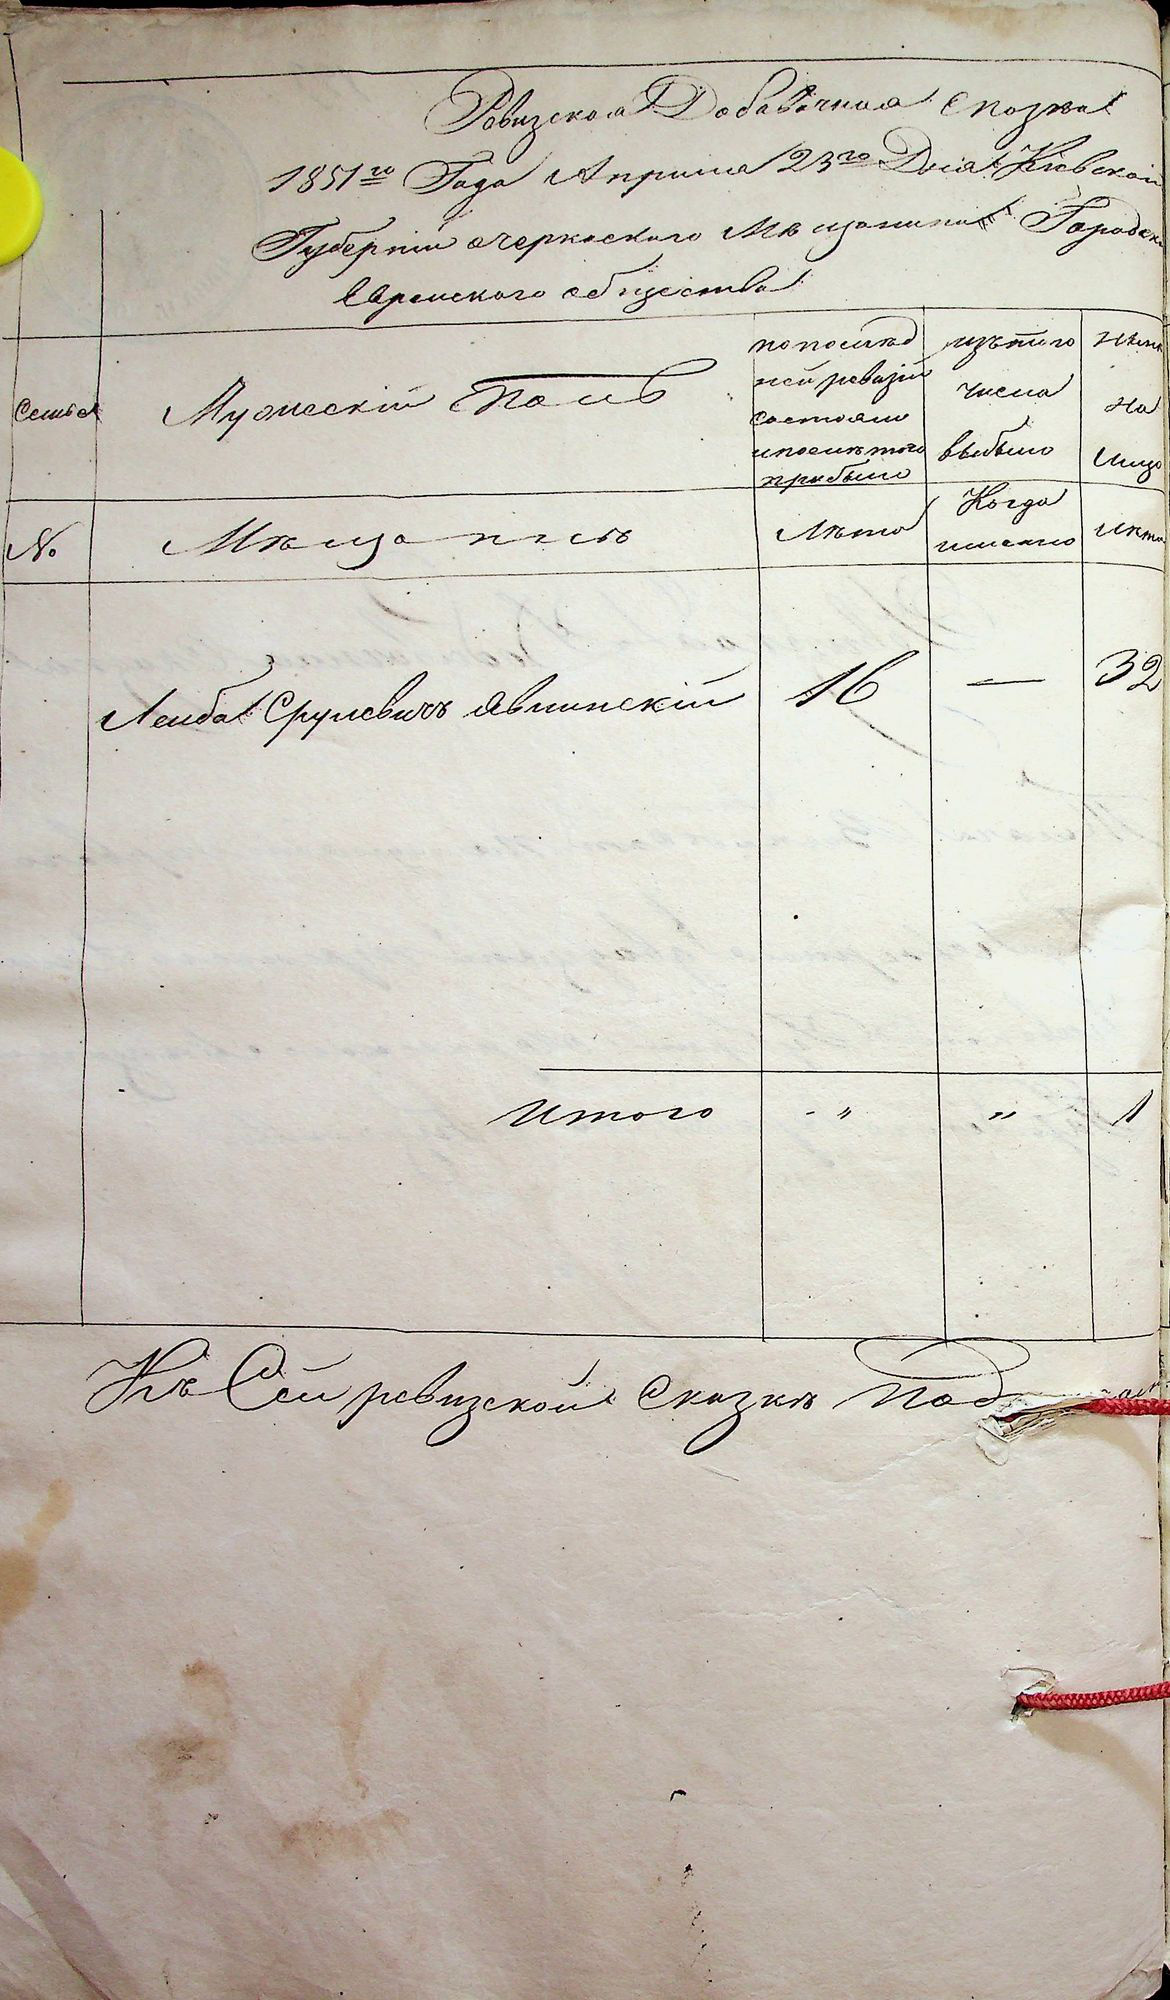 Ревизская Добавочная сказка
1851го Года Апреля 23го Дня Кіевской
Губерніи Черкаского Мѣщанина Городск
Евреиского общества
Семья
Мужескій Полъ
по послед
ней ревизіи
состояло
и послѣ того
прибыло
изъ того
числа
выбыло
Нынѣ
на
лицо
№
Мѣщанъ
Лѣта
Когда
именно
Лѣта
Леиба Срулевичъ Явлинскій 16 — 32
Итого - " " 1
Къ Сеи ревизской Сказкѣ Под